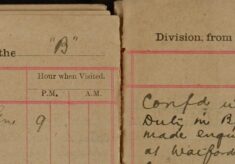 the "B"
Hour when Visited.
P.M. A.M.
9
Division, from
Confd
Duty in B
made enqu
at Watford